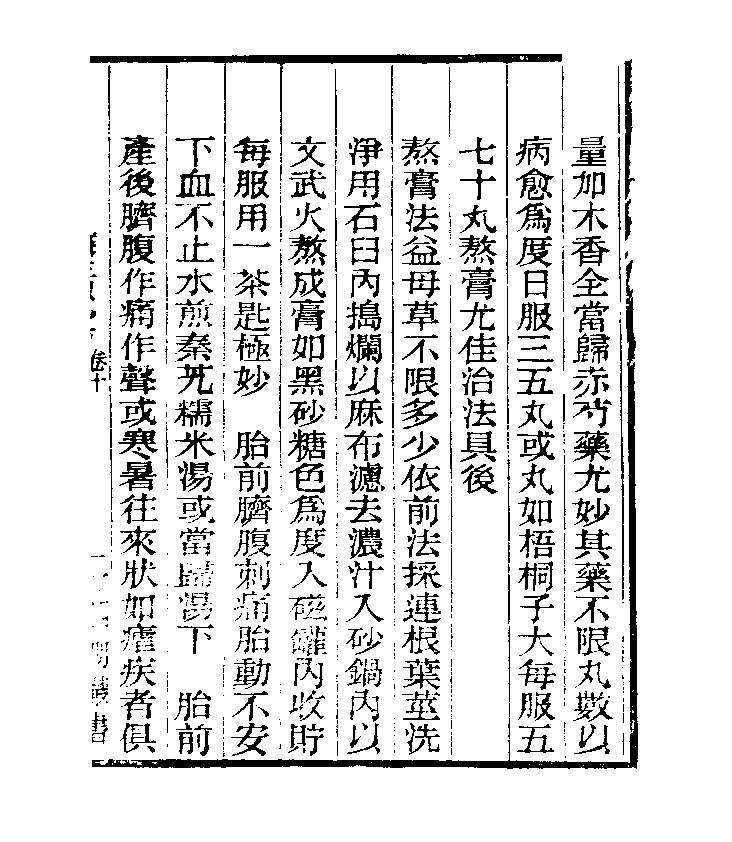 量加木香全當歸赤芍藥尤妙其藥不限丸數以
病愈爲度日服三五丸或丸如梧桐子大每服五
七十丸熬膏尤佳治法具後
熬膏法益母草不限多少依前法採連根葉莖洗
淨用石臼內搗爛以麻布濾去濃汁入砂鍋內以
文武火熬成膏如黑砂糖色爲度入磁罐內收貯
每服用一茶匙極妙　胎前臍腹刺痛胎動不安
下血不止水煎秦艽糯米湯或當歸湯下　胎前
產後臍腹作痛作聲或寒暑往來狀如瘧疾者俱
卷十
叢書